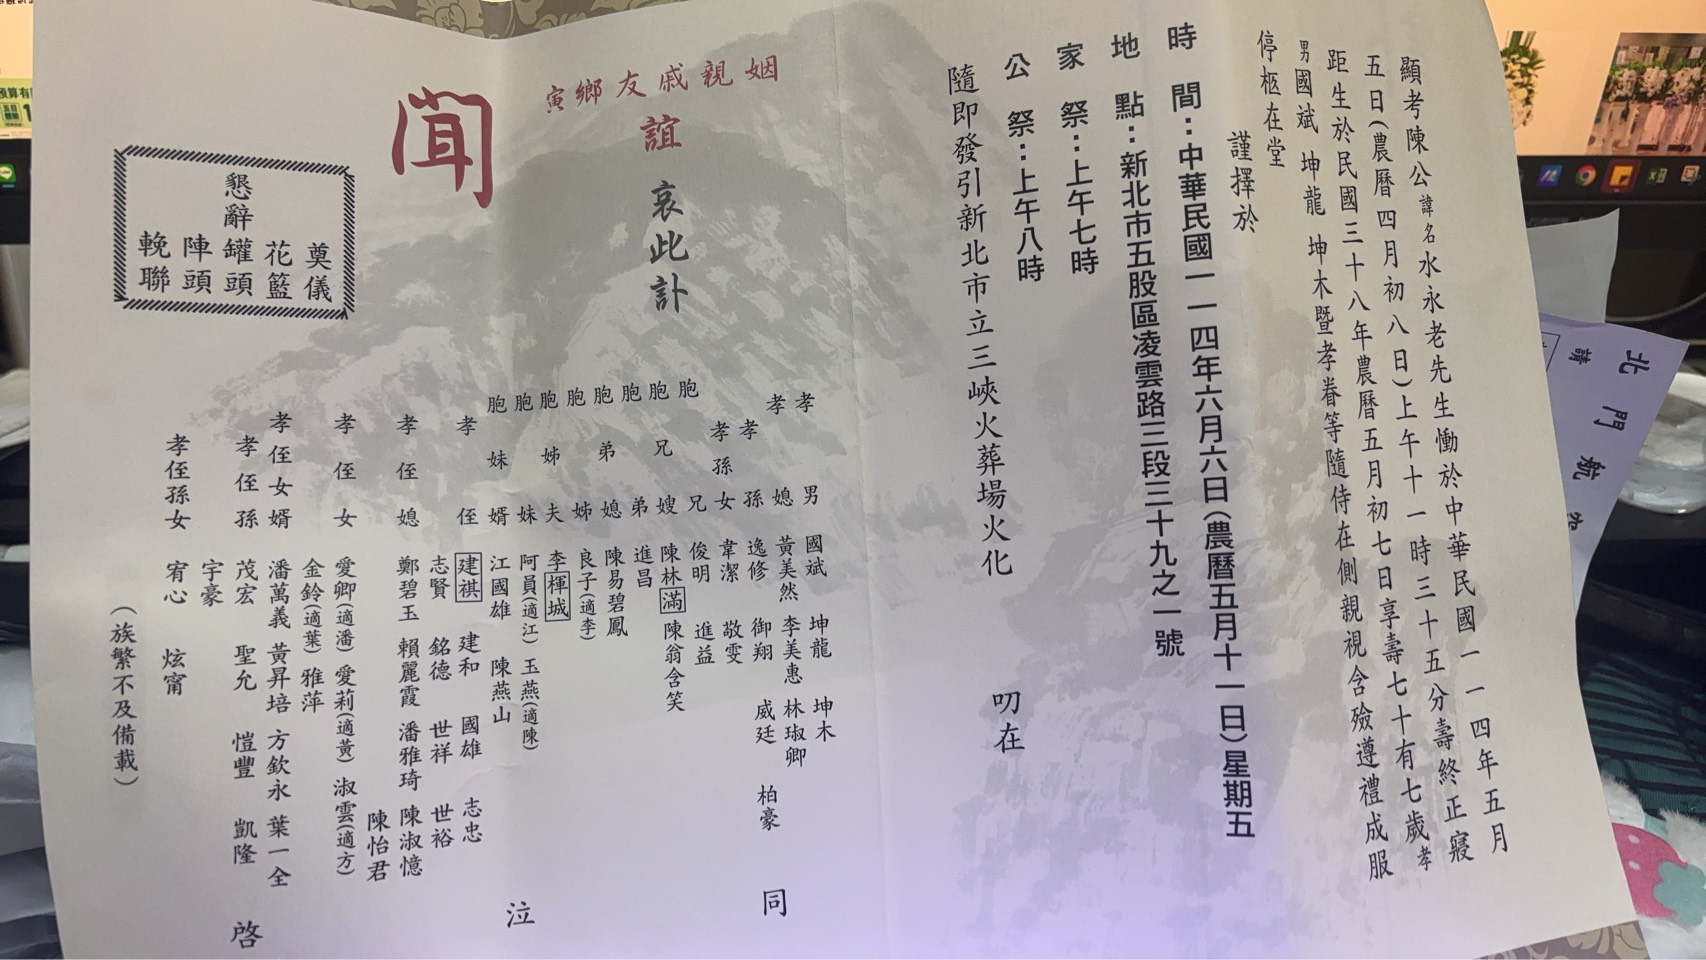 顯考陳公諱名水永老先生慟於中華民國一一四年五月
五日(農曆四月初八日)上午十一時三十五分壽終正寢
距生於民國三十八年農曆五月初七日享壽七十有七歲孝
男國斌 坤龍 坤木暨孝眷等隨侍在側親視含殮遵禮成服
停柩在堂
謹擇於
時 間:中華民國一一四年六月六日(農曆五月十一日)星期五
地 點:新北市五股區凌雲路三段三十九之一號
家 祭:上午七時
公 祭:上午八時
隨即發引新北市立三峽火葬場火化 叨在
姻親戚友鄉寅
誼 哀此訃
聞
孝男 國斌 坤龍 坤木
孝媳 黃美然 李美惠 林琡卿
孝孫 逸修 御翔 威廷 柏豪
孝孫女 韋潔 敬雯
胞兄 俊明 進益
胞兄嫂 陳林滿 陳翁含笑
胞弟 進昌
胞弟媳 陳易碧鳳
胞姊 良子(適李)
胞姊夫 李楎城
胞妹 阿員(適江) 玉燕(適陳)
胞妹婿 江國雄 陳燕山
孝侄 建祺 建和 國雄 志忠
志賢 銘德 世祥 世裕
孝侄媳 鄭碧玉 賴麗霞 潘雅琦 陳淑憶
陳怡君
孝侄女 愛卿(適潘) 愛莉(適黃) 淑雲(適方)
金鈴(適葉) 雅萍
孝侄女婿 潘萬義 黃昇培 方欽永 葉一全
孝侄孫 茂宏 聖允 愷豐 凱隆
宇豪
孝侄孫女 宥心 炫甯
(族繁不及備載)
同
泣
啓
懇辭
奠儀
花籃
罐頭
陣頭
輓聯
北門
請